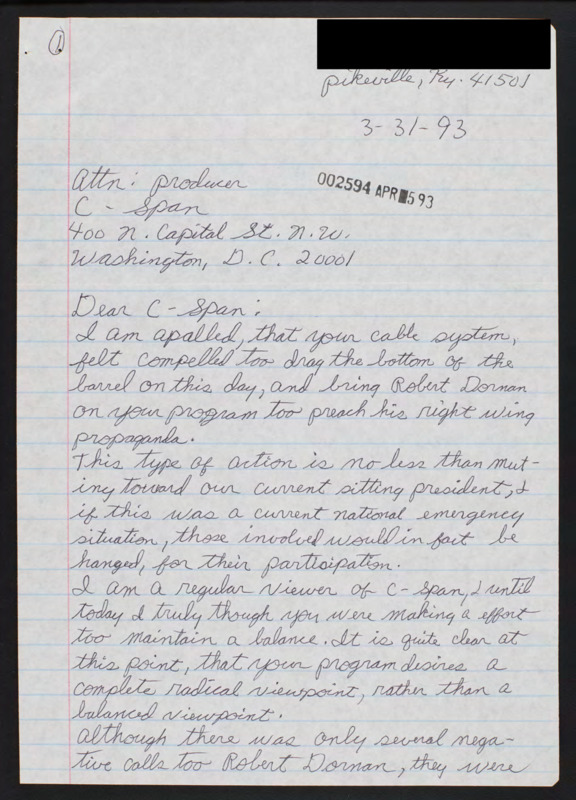 1
Pikeville, Ky. 41501
3-31-93
002594 APR 5 93
Attn: producer
C - Span
400 N. Capital St. N.W.
Washington, D.C. 20001
Dear C-Span:
I am apalled, that your cable system,
felt compelled too drag the bottom of the
barrel on this day, and bring Robert Dornan
on your program too preach his right wing
propaganda.
This type of action is no less than mut-
iny toward our current sitting president, &
if this was a current national emergency
situation, those involved would in fact be
hanged, for their participation.
I am a regular viewer of C-Span, & until
today I truly though you were making a effort
too maintain a balance. It is quite clear at
this point, that your program desires a
complete radical viewpoint, rather than a
balanced viewpoint.
Although there was only several nega-
tive calls too Robert Dornan, they were